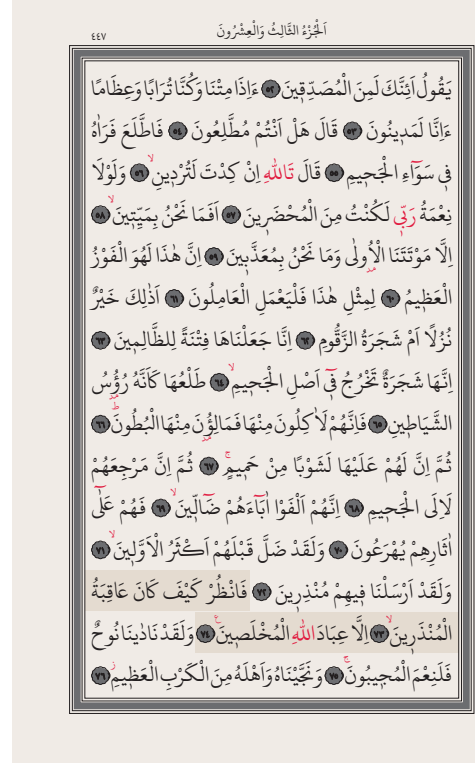 اَلْجُزْءُ الثَّالِثُ وَالْعِشْرُونَ
٤٤٧
يَقُولُ اَئِنَّكَ لَمِنَ الْمُصَدِّق۪ينَ ﴿٥٢﴾ ءَاِذَا مِتْنَا وَكُنَّا تُرَابًا وَعِظَامًا
ءَاِنَّا لَمَد۪ينُونَ ﴿٥٣﴾ قَالَ هَلْ اَنْتُمْ مُطَّلِعُونَ ﴿٥٤﴾ فَاطَّلَعَ فَرَاٰهُ
ف۪ي سَوَٓاءِ الْجَح۪يمِ ﴿٥٥﴾ قَالَ تَاللّٰهِ اِنْ كِدْتَ لَتُرْد۪ينِۙ ﴿٥٦﴾ وَلَوْلَا
نِعْمَةُ رَبّ۪ي لَكُنْتُ مِنَ الْمُحْضَر۪ينَ ﴿٥٧﴾ اَفَمَا نَحْنُ بِمَيِّت۪ينَۙ ﴿٥٨﴾
اِلَّا مَوْتَتَنَا الْاُو۫لٰى وَمَا نَحْنُ بِمُعَذَّب۪ينَ ﴿٥٩﴾ اِنَّ هٰذَا لَهُوَ الْفَوْزُ
الْعَظ۪يمُ ﴿٦٠﴾ لِمِثْلِ هٰذَا فَلْيَعْمَلِ الْعَامِلُونَ ﴿٦١﴾ اَذٰلِكَ خَيْرٌ
نُزُلًا اَمْ شَجَرَةُ الزَّقُّومِ ﴿٦٢﴾ اِنَّا جَعَلْنَاهَا فِتْنَةً لِلظَّالِم۪ينَ ﴿٦٣﴾
اِنَّهَا شَجَرَةٌ تَخْرُجُ ف۪ٓي اَصْلِ الْجَح۪يمِۙ ﴿٦٤﴾ طَلْعُهَا كَاَنَّهُ رُؤُ۫سُ
الشَّيَاط۪ينِ ﴿٦٥﴾ فَاِنَّهُمْ لَاٰكِلُونَ مِنْهَا فَمَالِؤُ۫نَ مِنْهَا الْبُطُونَۜ ﴿٦٦﴾
ثُمَّ اِنَّ لَهُمْ عَلَيْهَا لَشَوْبًا مِنْ حَم۪يمٍۚ ﴿٦٧﴾ ثُمَّ اِنَّ مَرْجِعَهُمْ
لَاِلَى الْجَح۪يمِ ﴿٦٨﴾ اِنَّهُمْ اَلْفَوْا اٰبَٓاءَهُمْ ضَٓالّ۪ينَۙ ﴿٦٩﴾ فَهُمْ عَلٰٓى
اٰثَارِهِمْ يُهْرَعُونَ ﴿٧٠﴾ وَلَقَدْ ضَلَّ قَبْلَهُمْ اَكْثَرُ الْاَوَّل۪ينَۙ ﴿٧١﴾
وَلَقَدْ اَرْسَلْنَا ف۪يهِمْ مُنْذِر۪ينَ ﴿٧٢﴾ فَانْظُرْ كَيْفَ كَانَ عَاقِبَةُ
الْمُنْذَر۪ينَۙ ﴿٧٣﴾ اِلَّا عِبَادَ اللّٰهِ الْمُخْلَص۪ينَ۟ ﴿٧٤﴾ وَلَقَدْ نَادٰينَا نُوحٌ
فَلَنِعْمَ الْمُج۪يبُونَۚ ﴿٧٥﴾ وَنَجَّيْنَاهُ وَاَهْلَهُ مِنَ الْكَرْبِ الْعَظ۪يمِۘ ﴿٧٦﴾